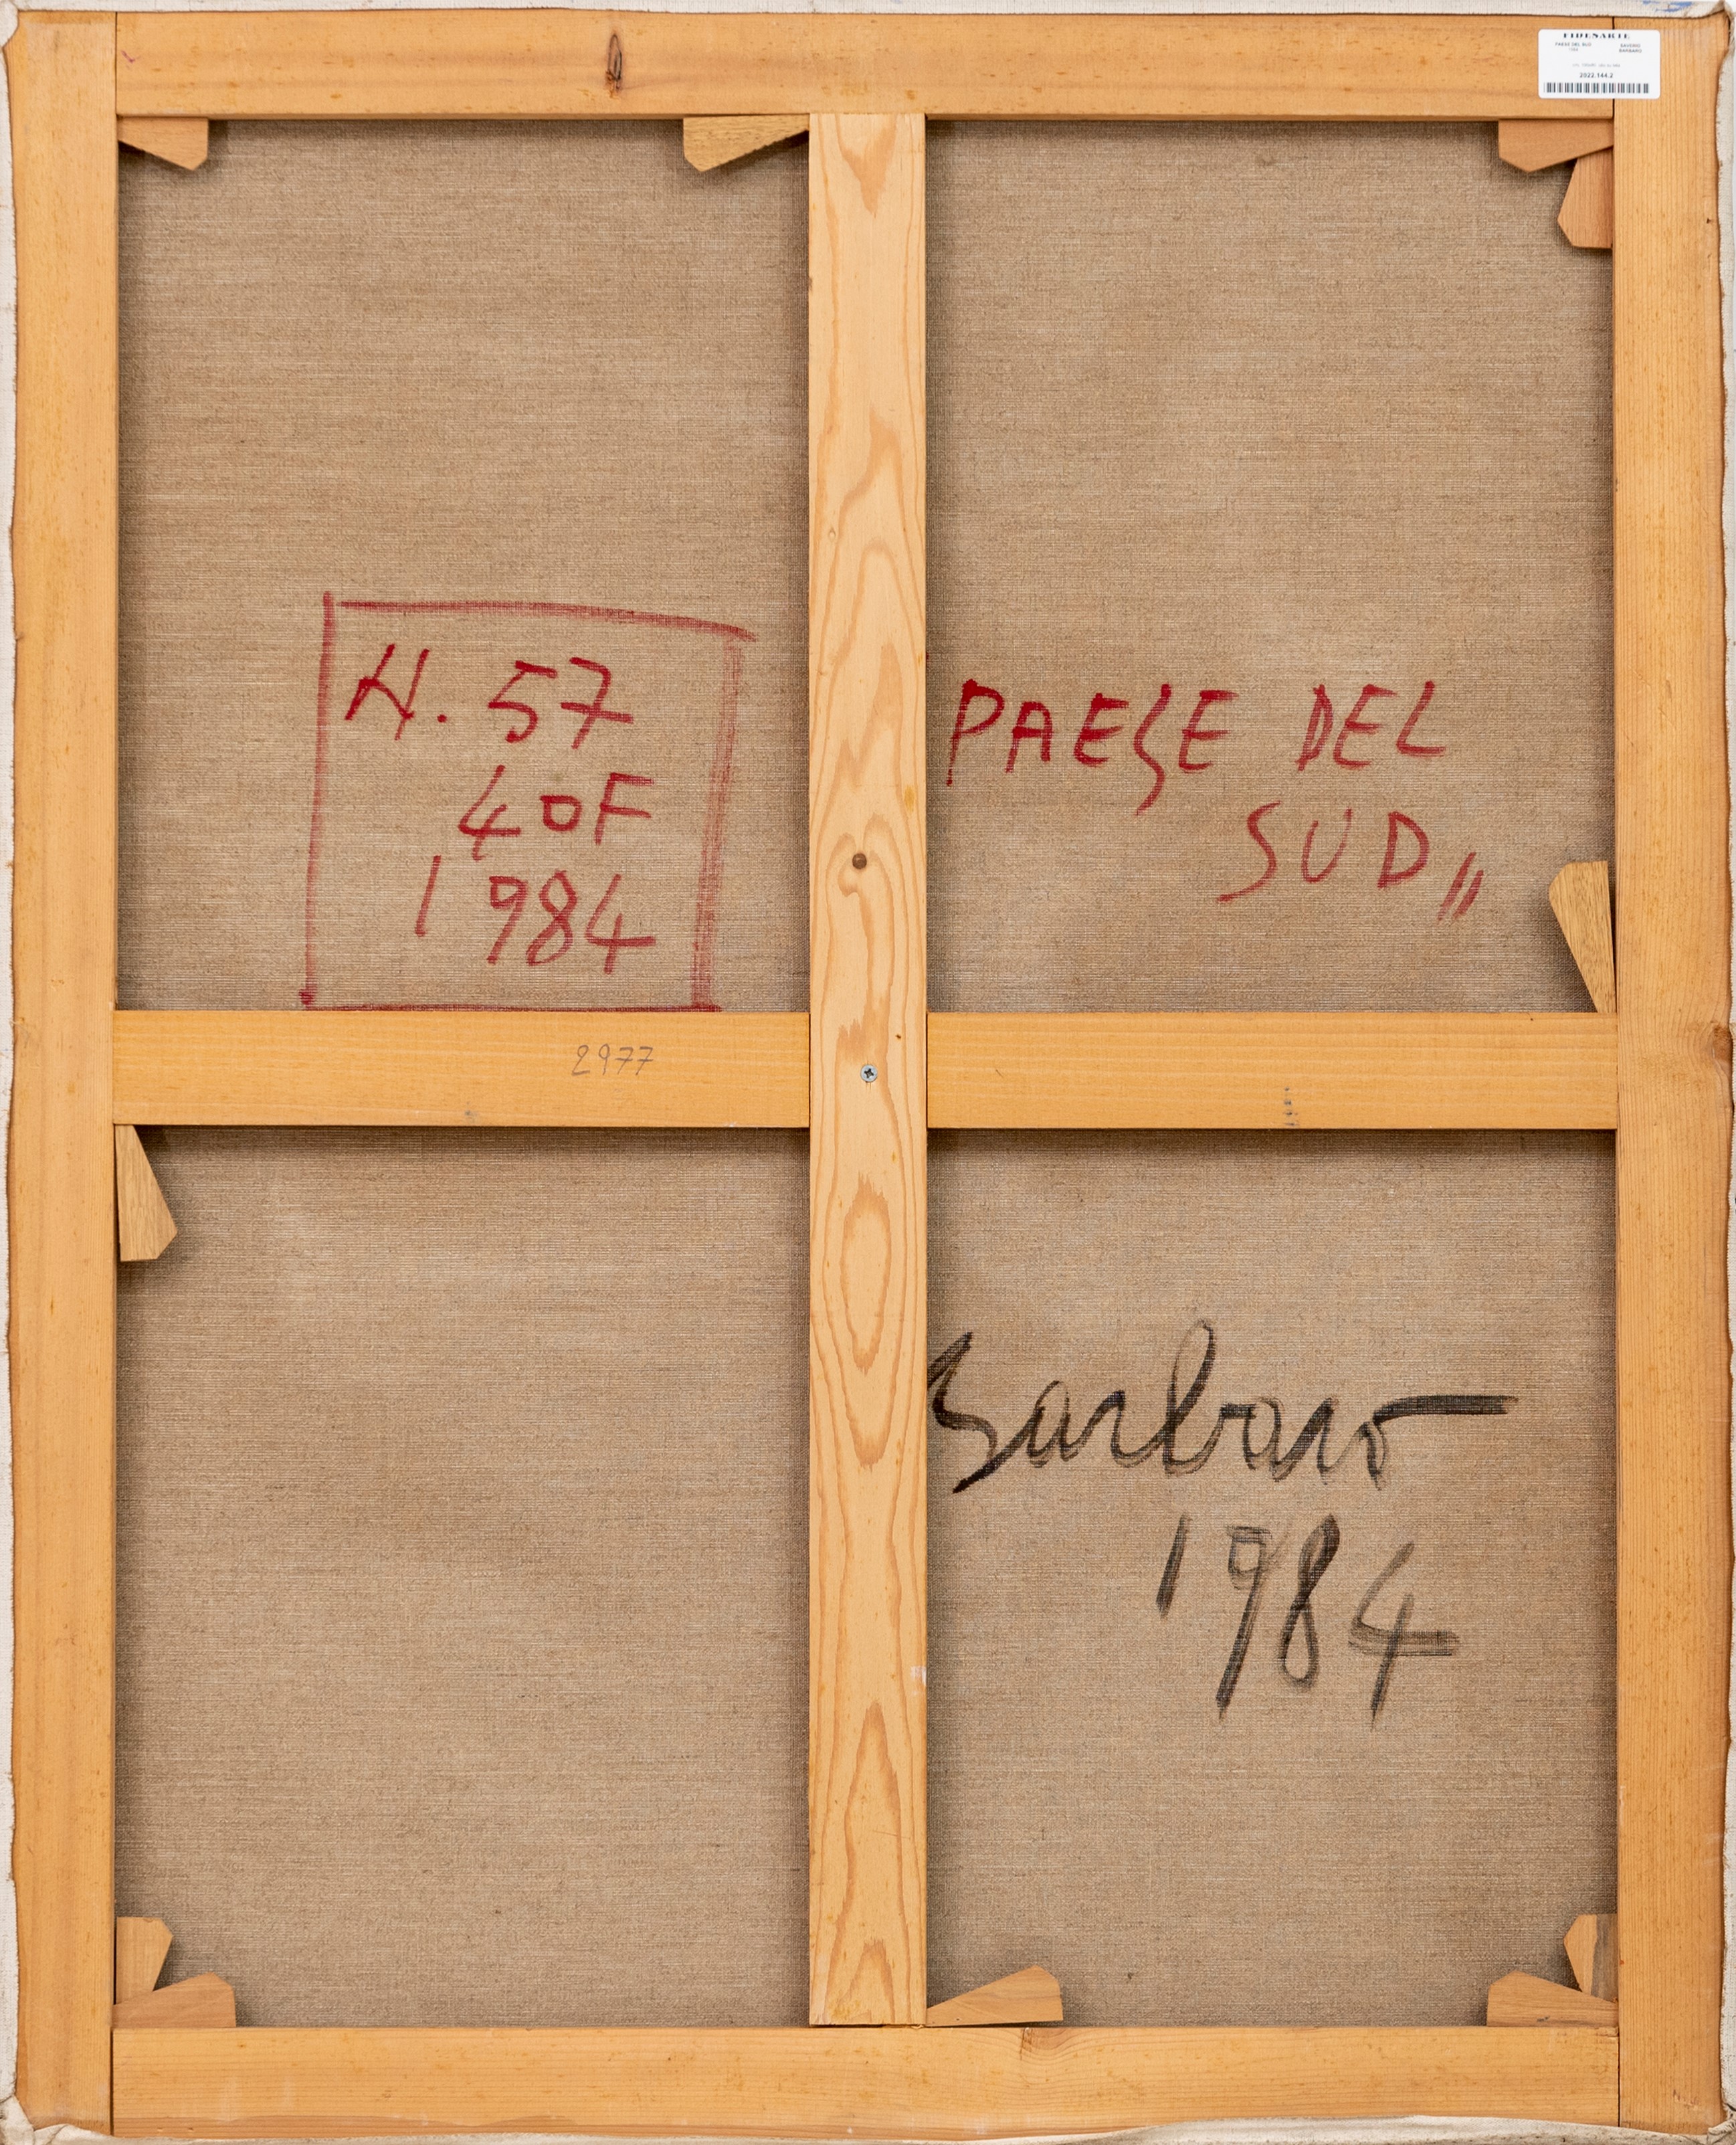 FIDESARTE
PAESE DEL SUD
SAVERIO
BARBARO
2022.144.2
N. 57
40F
1984
PAESE DEL
SUD "
2977
Barbaro
1984